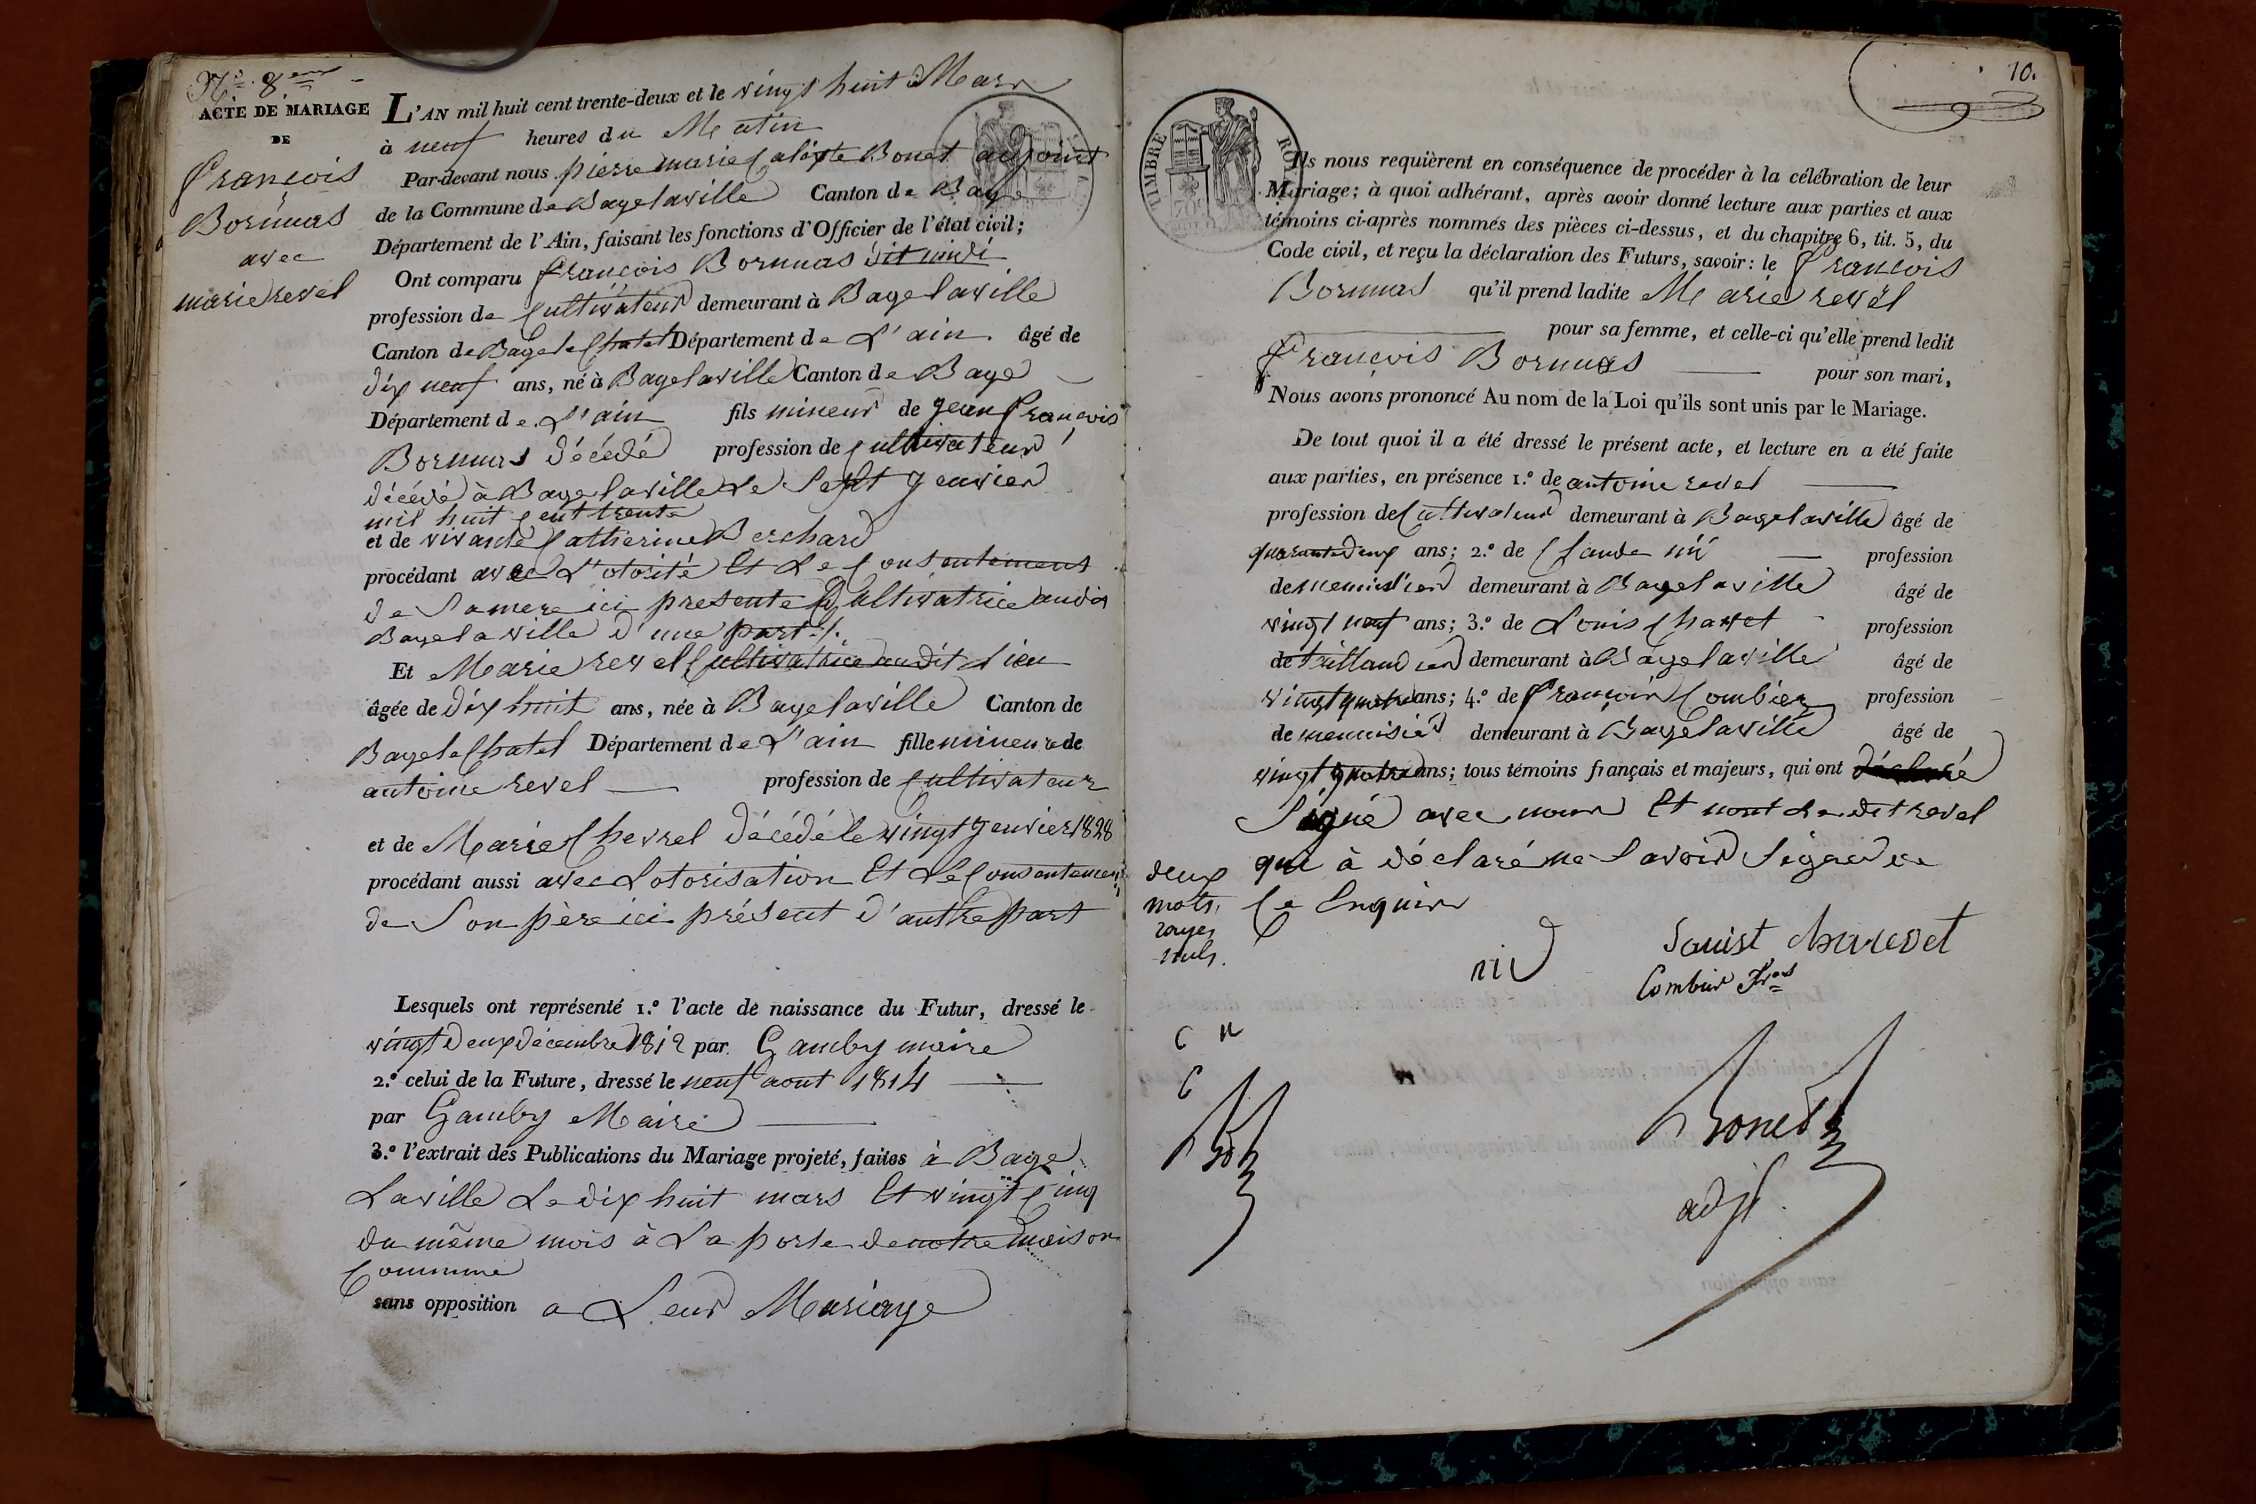 N.° 8.eme
ACTE DE MARIAGE
DE
françois
Bornuas
avec
marie revel
L'AN mil huit cent trente-deux et le vingt huit Mars
à neuf heures du Matin
Par-devant nous pierre marie Calixte Bonet adjoint
de la Commune de Bagelaville Canton de Bagé
Département de l'Ain, faisant les fonctions d'Officier de l'état civil;
Ont comparu françois Bornuas dit
profession de Cultivateur demeurant à Bagelaville
Canton de Bagele Chatel Département de L'ain âgé de
dix neuf ans, né à Bagelaville Canton de Bagé
Département de L'ain fils mineur de jean françois
Bornuas décédé profession de Cultivateur
décédé à Bagelaville Le Sept Jenvier
mil huit Cent trente
et de vivante Catherine Berchard
procédant avec L'otorité Et Le Consentement
de Samere ici presente Cultivatrice audit
Bagelaville d'une part./.
Et Marie revel Cultivatrice audit Lieu
âgée de dix huit ans, née à Bagelaville Canton de
Bagele Chatel Département de L'ain fille mineure de
antoine revel profession de Cultivateur
et de Marie Chevrel décédé le vingt Jenvier 1828
procédant aussi avec Lotorisation Et Le Consentement
de Son père ici présent d'autre part
Lesquels ont représenté 1.° l'acte de naissance du Futur, dressé le
vingt deux décembre 1812 par Gamby maire
2.° celui de la Future, dressé le neuf aout 1814
par Gamby Maire
3.° l'extrait des Publications du Mariage projeté, faites à Bagé
Laville Le dix huit mars Et vingt Cinq
du même mois à La porte de notre maison
Commune
sans opposition a Leur Mariage
10.
TIMBRE ROYAL
Ils nous requièrent en conséquence de procéder à la célébration de leur
Mariage; à quoi adhérant, après avoir donné lecture aux parties et aux
témoins ci-après nommés des pièces ci-dessus, et du chapitre 6, tit. 5, du
Code civil, et reçu la déclaration des Futurs, savoir: le françois
Bornuas qu'il prend ladite Marie revel
pour sa femme, et celle-ci qu'elle prend ledit
françois Bornuas pour son mari,
Nous avons prononcé Au nom de la Loi qu'ils sont unis par le Mariage.
De tout quoi il a été dressé le présent acte, et lecture en a été faite
aux parties, en présence 1.° de antoine revel
profession de Cultivateur demeurant à Bagelaville âgé de
quarante deux ans; 2.° de Claude profession
de menuisier demeurant à Bagelaville âgé de
vingt neuf ans; 3.° de Louis Chavet profession
de taillandier demeurant à Bagelaville âgé de
vingt quatre ans; 4.° de françois Combier profession
de menuisier demeurant à Bagelaville âgé de
vingt quatre ans; tous témoins français et majeurs, qui ont déclaré
Signé avec nous Et non Le dit revel
qui à déclaré ne Savoir Signer de
Ce Enquis
deux
mots
rayés
nuls.
Louist
Combier Fr.ois
C
C
Bonet
adjt.